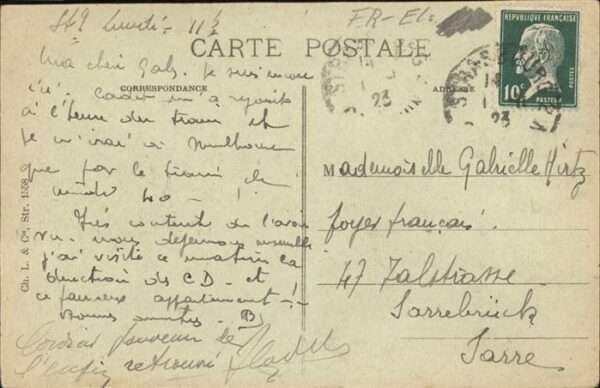 Lundi - 11½
FR-EL
CARTE POSTALE
CORRESPONDANCE
Ma chère Gab. Je suis
à l'heure du train et
je n'irai à Mulhouse
que par le train de
midi 40 - !
Très content de l'avoir
vu. nous déjeunons ensemble
j'ai visité ce matin la
direction des CD - et
ce fameux appartement - !
Bonnes amitiés - B
Cordial souvenir de
l'enfin retrouvé
Ch. L. & Cie, Str. 1558
RÉPUBLIQUE FRANÇAISE
POSTES
PASTEUR
10c
STRASBOURG
23
23
Mademoiselle Gabrielle Hirtz
foyer français.
47 Talstrasse
Sarrebrück
Sarre